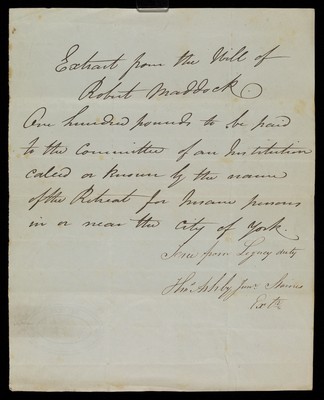 Extract from the Will of
Robert Maddock.
One hundred pounds to be paid
to the Committee of an Institution
called or known by the name
of the Retreat for Insane persons
in or near the City of York.
Free from Legacy duty
Thos Ashby Junr Staines
Exr